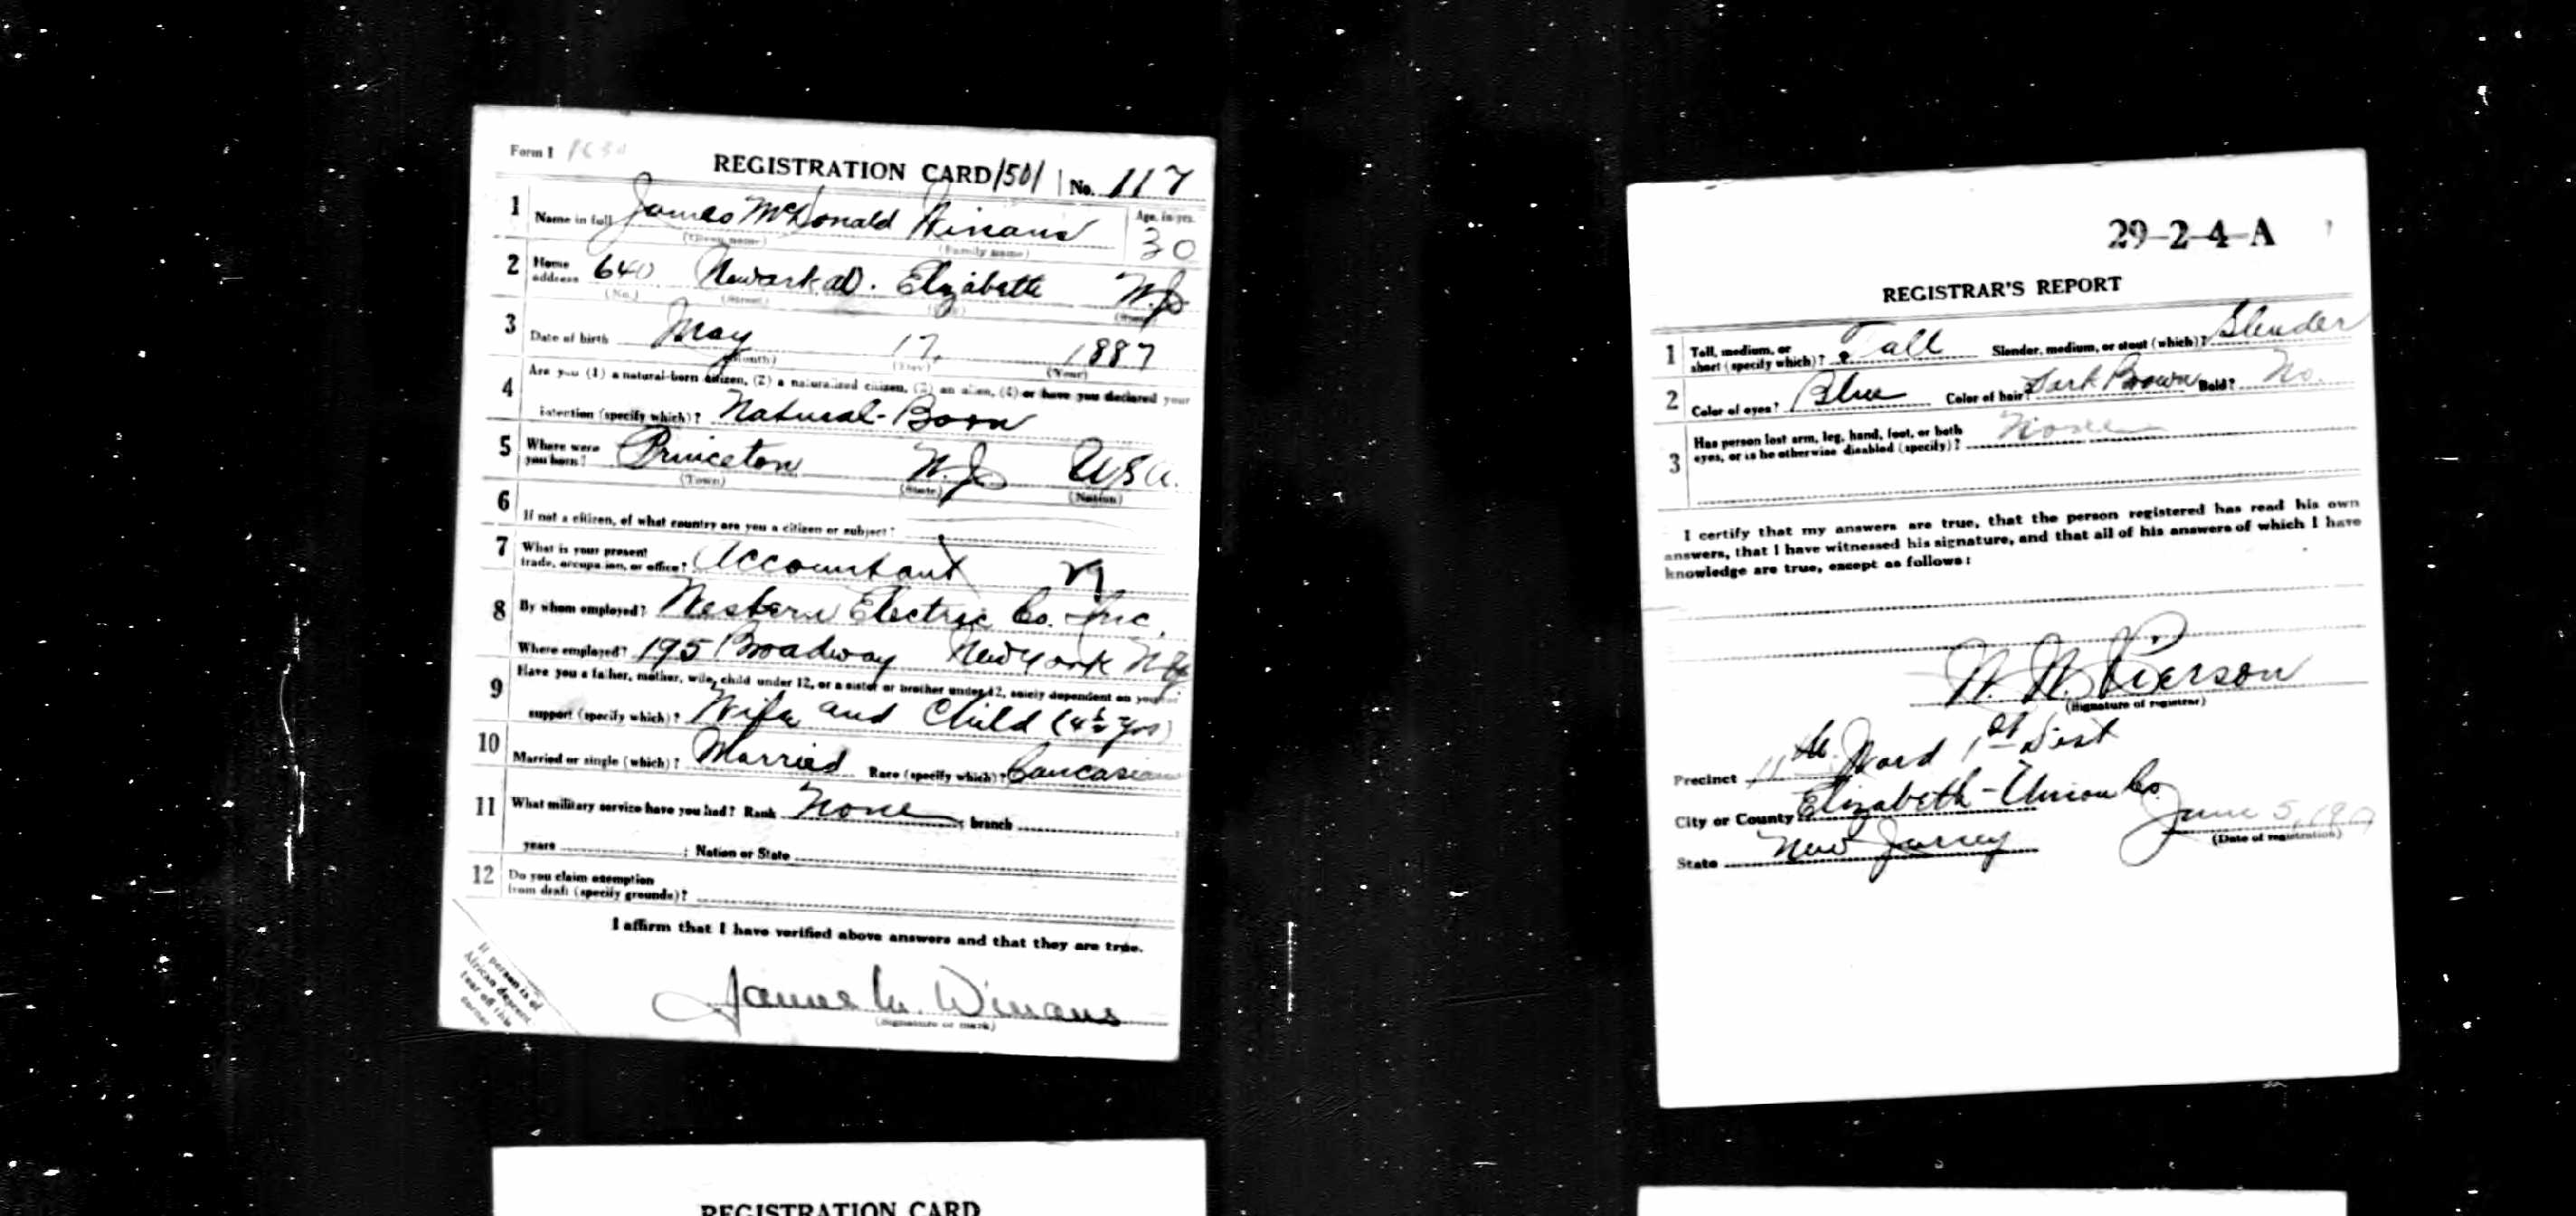 Form 1
REGISTRATION CARD 1501 No. 117
1 Name in full James McDonald Winans Age, in yrs. 30
(Given name) (Family name)
2 Home address 640 Newark av. Elizabeth N.J.
(No.) (Street) (City) (State)
3 Date of birth May 17, 1887
(Month) (Day) (Year)
4 Are you (1) a natural-born citizen, (2) a naturalized citizen, (3) an alien, (4) or have you declared your
intention (specify which)? Natural-Born
5 Where were you born? Princeton N.J. U.S.A.
(Town) (State) (Nation)
6 If not a citizen, of what country are you a citizen or subject?
7 What is your present trade, occupation, or office? Accountant
8 By whom employed? Western Electric Co. Inc.
Where employed? 195 Broadway New York N.Y.
9 Have you a father, mother, wife, child under 12, or a sister or brother under 12, solely dependent on you for
support (specify which)? Wife and Child (4½ yrs)
10 Married or single (which)? Married Race (specify which)? Caucasian
11 What military service have you had? Rank None ; branch
years ; Nation or State
12 Do you claim exemption from draft (specify grounds)?
I affirm that I have verified above answers and that they are true.
James M. Winans
(Signature or mark)
If person is of
African descent,
tear off this
corner
REGISTRATION CARD
29-2-4-A
REGISTRAR'S REPORT
1 Tall, medium, or short (specify which)? Tall Slender, medium, or stout (which)? Slender
2 Color of eyes? Blue Color of hair? Dark Brown Bald? No.
3 Has person lost arm, leg, hand, foot, or both
eyes, or is he otherwise disabled (specify)? None
I certify that my answers are true, that the person registered has read his own
answers, that I have witnessed his signature, and that all of his answers of which I have
knowledge are true, except as follows:
W. W. Pierson
(Signature of registrar)
Precinct 11 th. Ward 1st Dist
City or County Elizabeth - Union Co.
State New Jersey
June 5, 1917
(Date of registration)